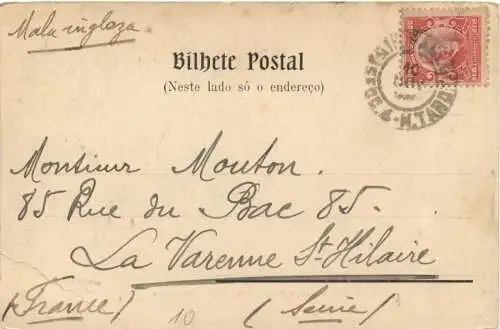 Mala ingleza
Bilhete Postal
(Neste lado só o endereço)
Monsieur Mouton.
85 Rue du Bac 85.
La Varenne St Hilaire
(France) (Seine)
10